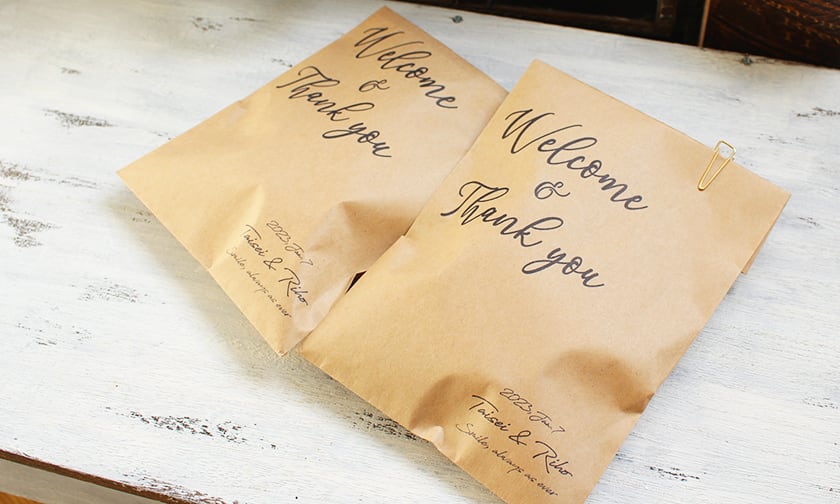 Welcome
&
Thank you
2023, Jan, 7
Taisei & Riho
Smile, always as ever
Welcome
&
Thank you
2023, Jan, 7
Taisei & Riho
Smile, always as ever